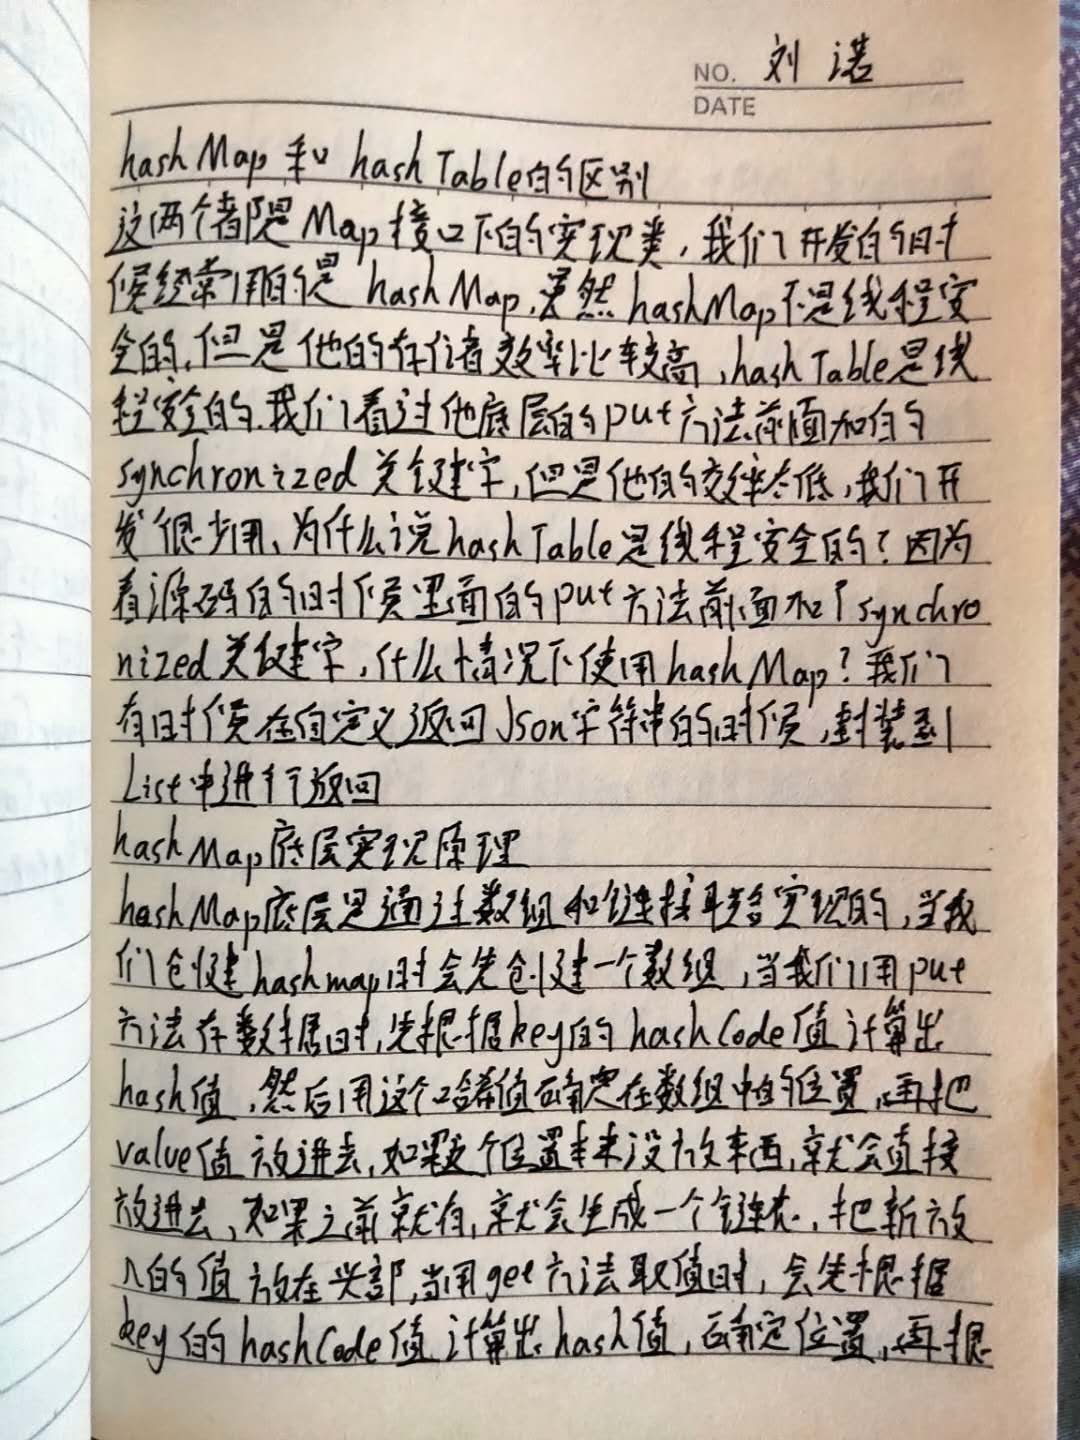 NO. 刘诺
DATE
hashMap 和 hashTable的区别
这两个都是Map接口下的实现类,我们开发的时
候经常用的是 hashMap,虽然 hashMap不是线程安
全的,但是他的存储效率比较高,hashTable是线
程安全的.我们看过他底层的put方法前面加的
synchronized 关键字,但是他的效率太低,我们开
发很少用、为什么说hashTable是线程安全的?因为
看源码的时候里面的put方法前面加了synchro
nized关键字,什么情况下使用hashMap?我们
有时候在自定义返回Json字符串的时候,封装到
List中进行返回
hashMap底层实现原理
hashMap底层是通过数组和链接联合实现的,当我
们创建hashmap时会先创建一个数组,当我们用put
方法存数据时,先根据key的 hashCode值计算出
hash值,然后用这个哈希值确定在数组中的位置,再把
value值放进去,如果这个位置本来没放东西,就会直接
放进去,如果之前就有,就会生成一个链表,把新放
入的值放在头部,当用get方法取值时,会先根据
key的hashCode值计算出hash值,确定位置,再根